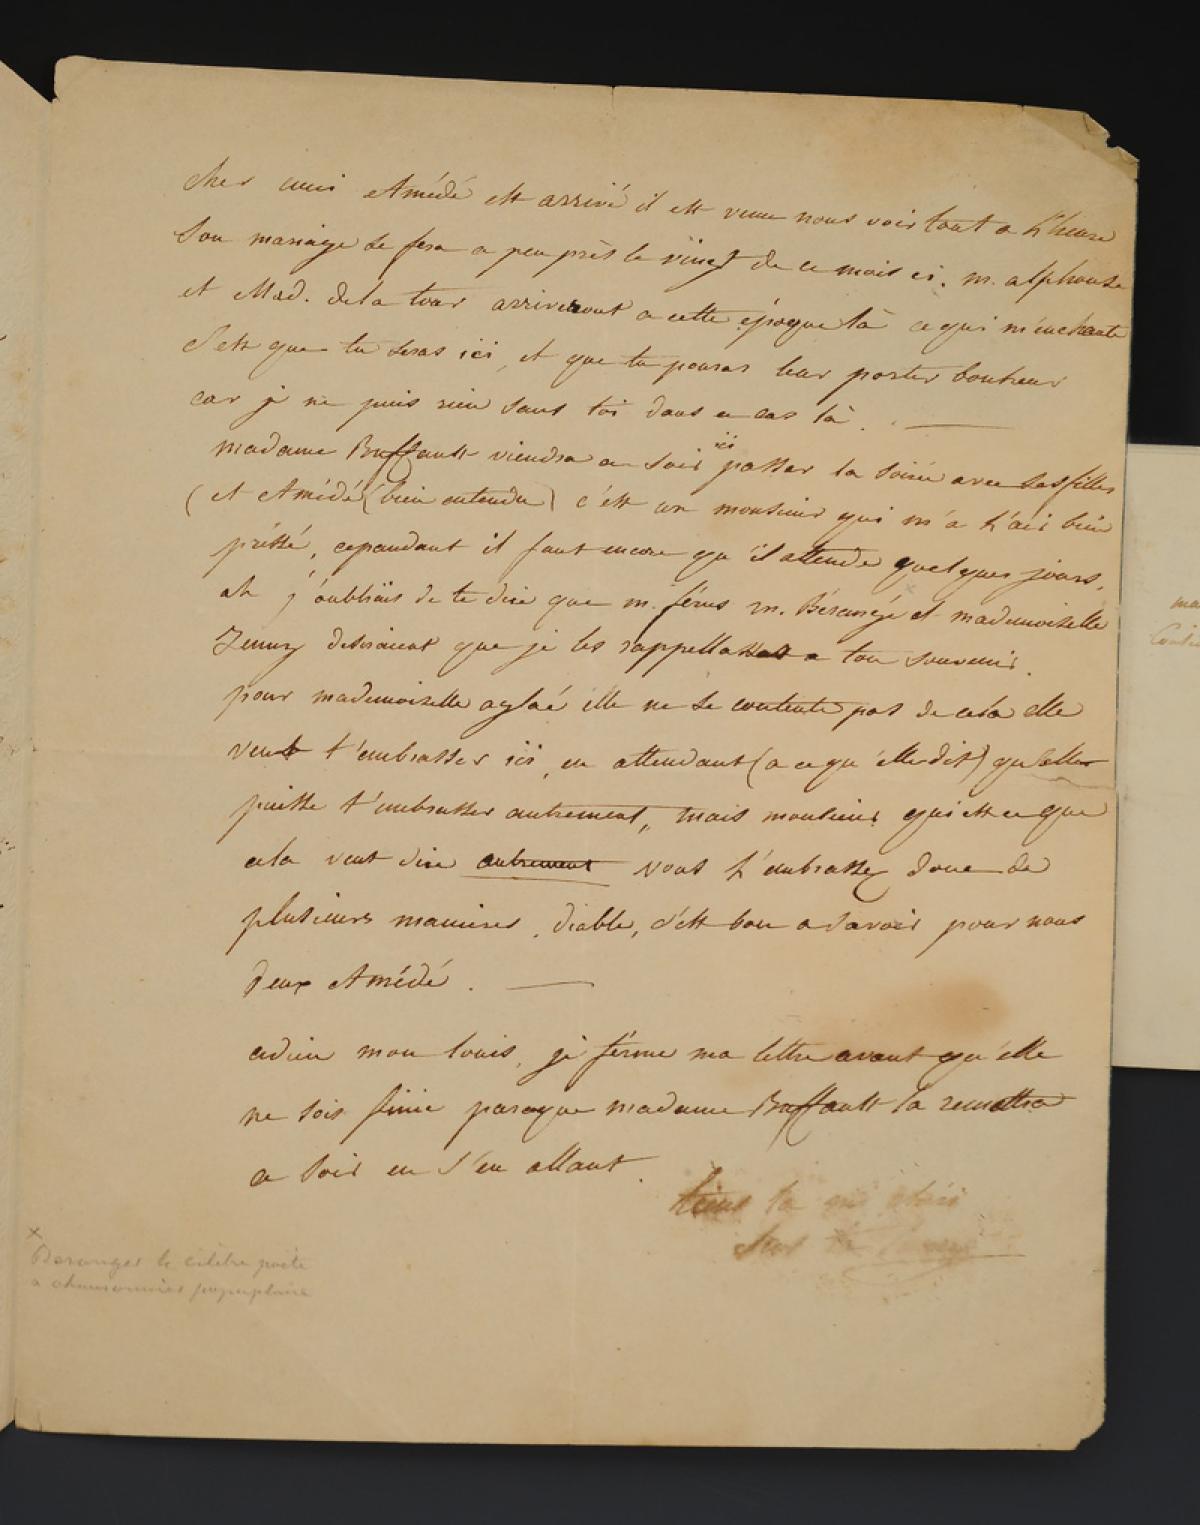 cher ami Amédé est arrivé il est venu nous voir tout a l'heure
Son mariage se fera a peu près le vingt de ce mois ci. m. alphonse
et Mad. de la tour arriveront a cette époque là ce qui m'enchante
c'est que tu seras ici, et que tu pouras leur porter bonheur
car je ne puis rien sans toi dans ce cas là.
madame Buffault viendra ce soir ici passer la soirée avec ses filles
(et Amédé (bien entendu) c'est un monsieur qui m'a l'air bien
préssé, cependant il faut encore qu'il attende quelques jours,
ah j'oubliais de te dire que m. férus m. Béranger et mademoiselle
Jenny desiraient que je les rappellasse a ton souvenir.
pour mademoiselle aglaé elle ne se contente pas de cela elle
veut t'embrasser ici, en attendant (a ce qu'elle dit) qu'elle
puisse t'embrasser autrement, mais monsieur qu'est ce que
cela veut dire autrement vous l'embrassez donc de
plusieurs manieres, diable, c'est bon a savoir pour nous
deux Amédé.
adieu mon louis, je ferme ma lettre avant qu'elle
ne soit finie parceque madame Buffault la remettra
ce soir en s'en allant.
la
x
Beranger le célèbre poète
& chansonnier populaire